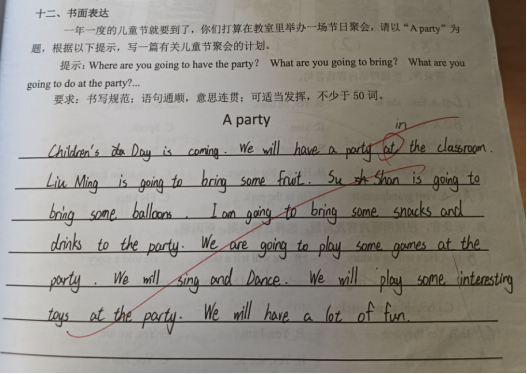 十二、书面表达
一年一度的儿童节就要到了，你们打算在教室里举办一场节日聚会，请以“A party”为
题，根据以下提示，写一篇有关儿童节聚会的计划。
提示：Where are you going to have the party? What are you going to bring? What are you
going to do at the party?...
要求：书写规范；语句通顺，意思连贯；可适当发挥，不少于 50 词。
A party
in
Children's Day is coming. We will have a party at the classroom.
Liu Ming is going to bring some fruit. Su Shan is going to
bring some balloons. I am going to bring some snacks and
drinks to the party. We are going to play some games at the
party. We will sing and Dance. We will play some interesting
toys at the party. We will have a lot of fun.